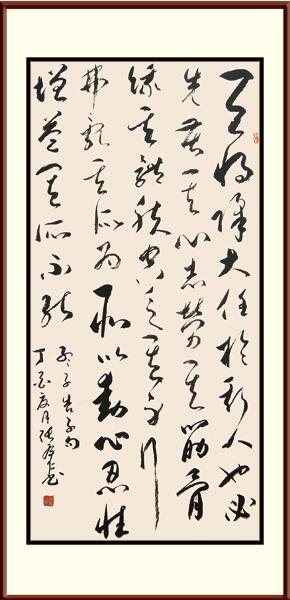 天将降大任於斯人也必
先苦其心志勞其筋骨
餓其體膚空乏其身行
拂亂其所為所以動心忍性
增益其所不能
孟子告子句
丁亥夏月張